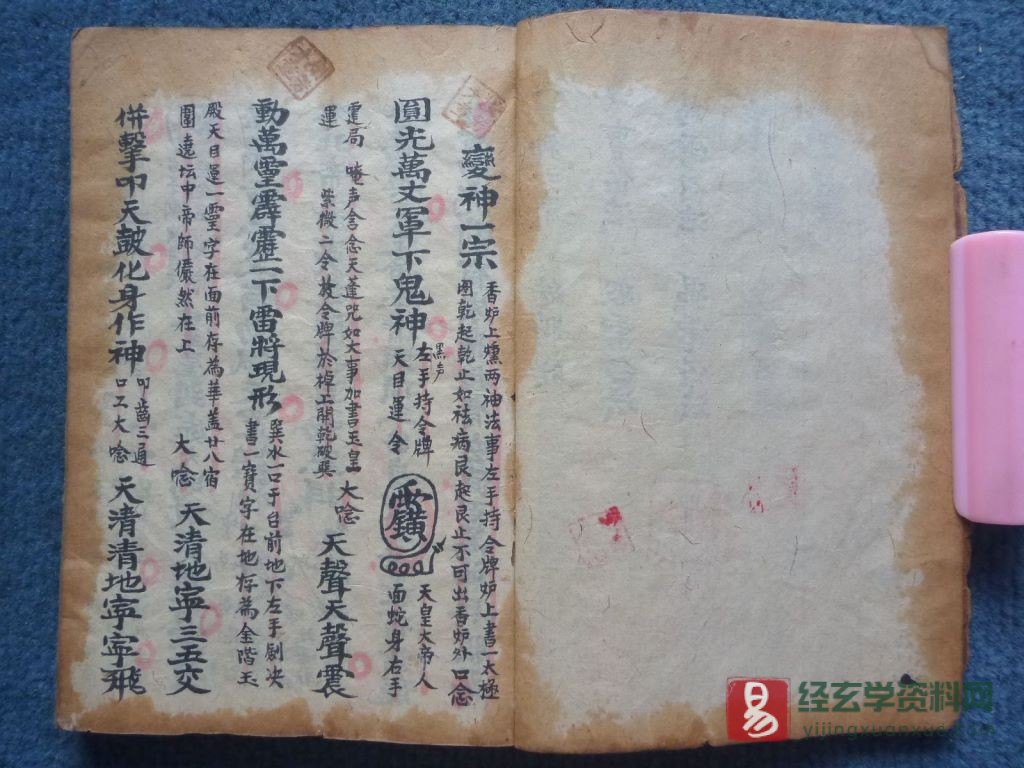 變神一宗
香炉上燻两袖法事左手持令牌炉上書一太極
圈乾起乾止如祛病艮起艮止不可出香炉外口念
圓光萬丈軍下鬼神
黑声
左手持令牌
天目運令
天皇大帝人
面蛇身右手
運局
唵声含念天蓬咒如大事加書玉皇
紫微二令放令牌於棹上開乾破巽
大唸
天聲天聲震
動萬霊霹靂一下雷將現形
巽水一口于台前地下左手劍决
書一寶字在地存為金階玉
殿天目運一霊字在面前存為華盖廿八宿
圍遶坛中帝師儼然在上
大唸
天清地寧三五交
併擊叩天鼓化身作神
叩齒三通
口工大唸
天清清地寧寧飛
易
经玄学资料网
yijingxuanxue.com